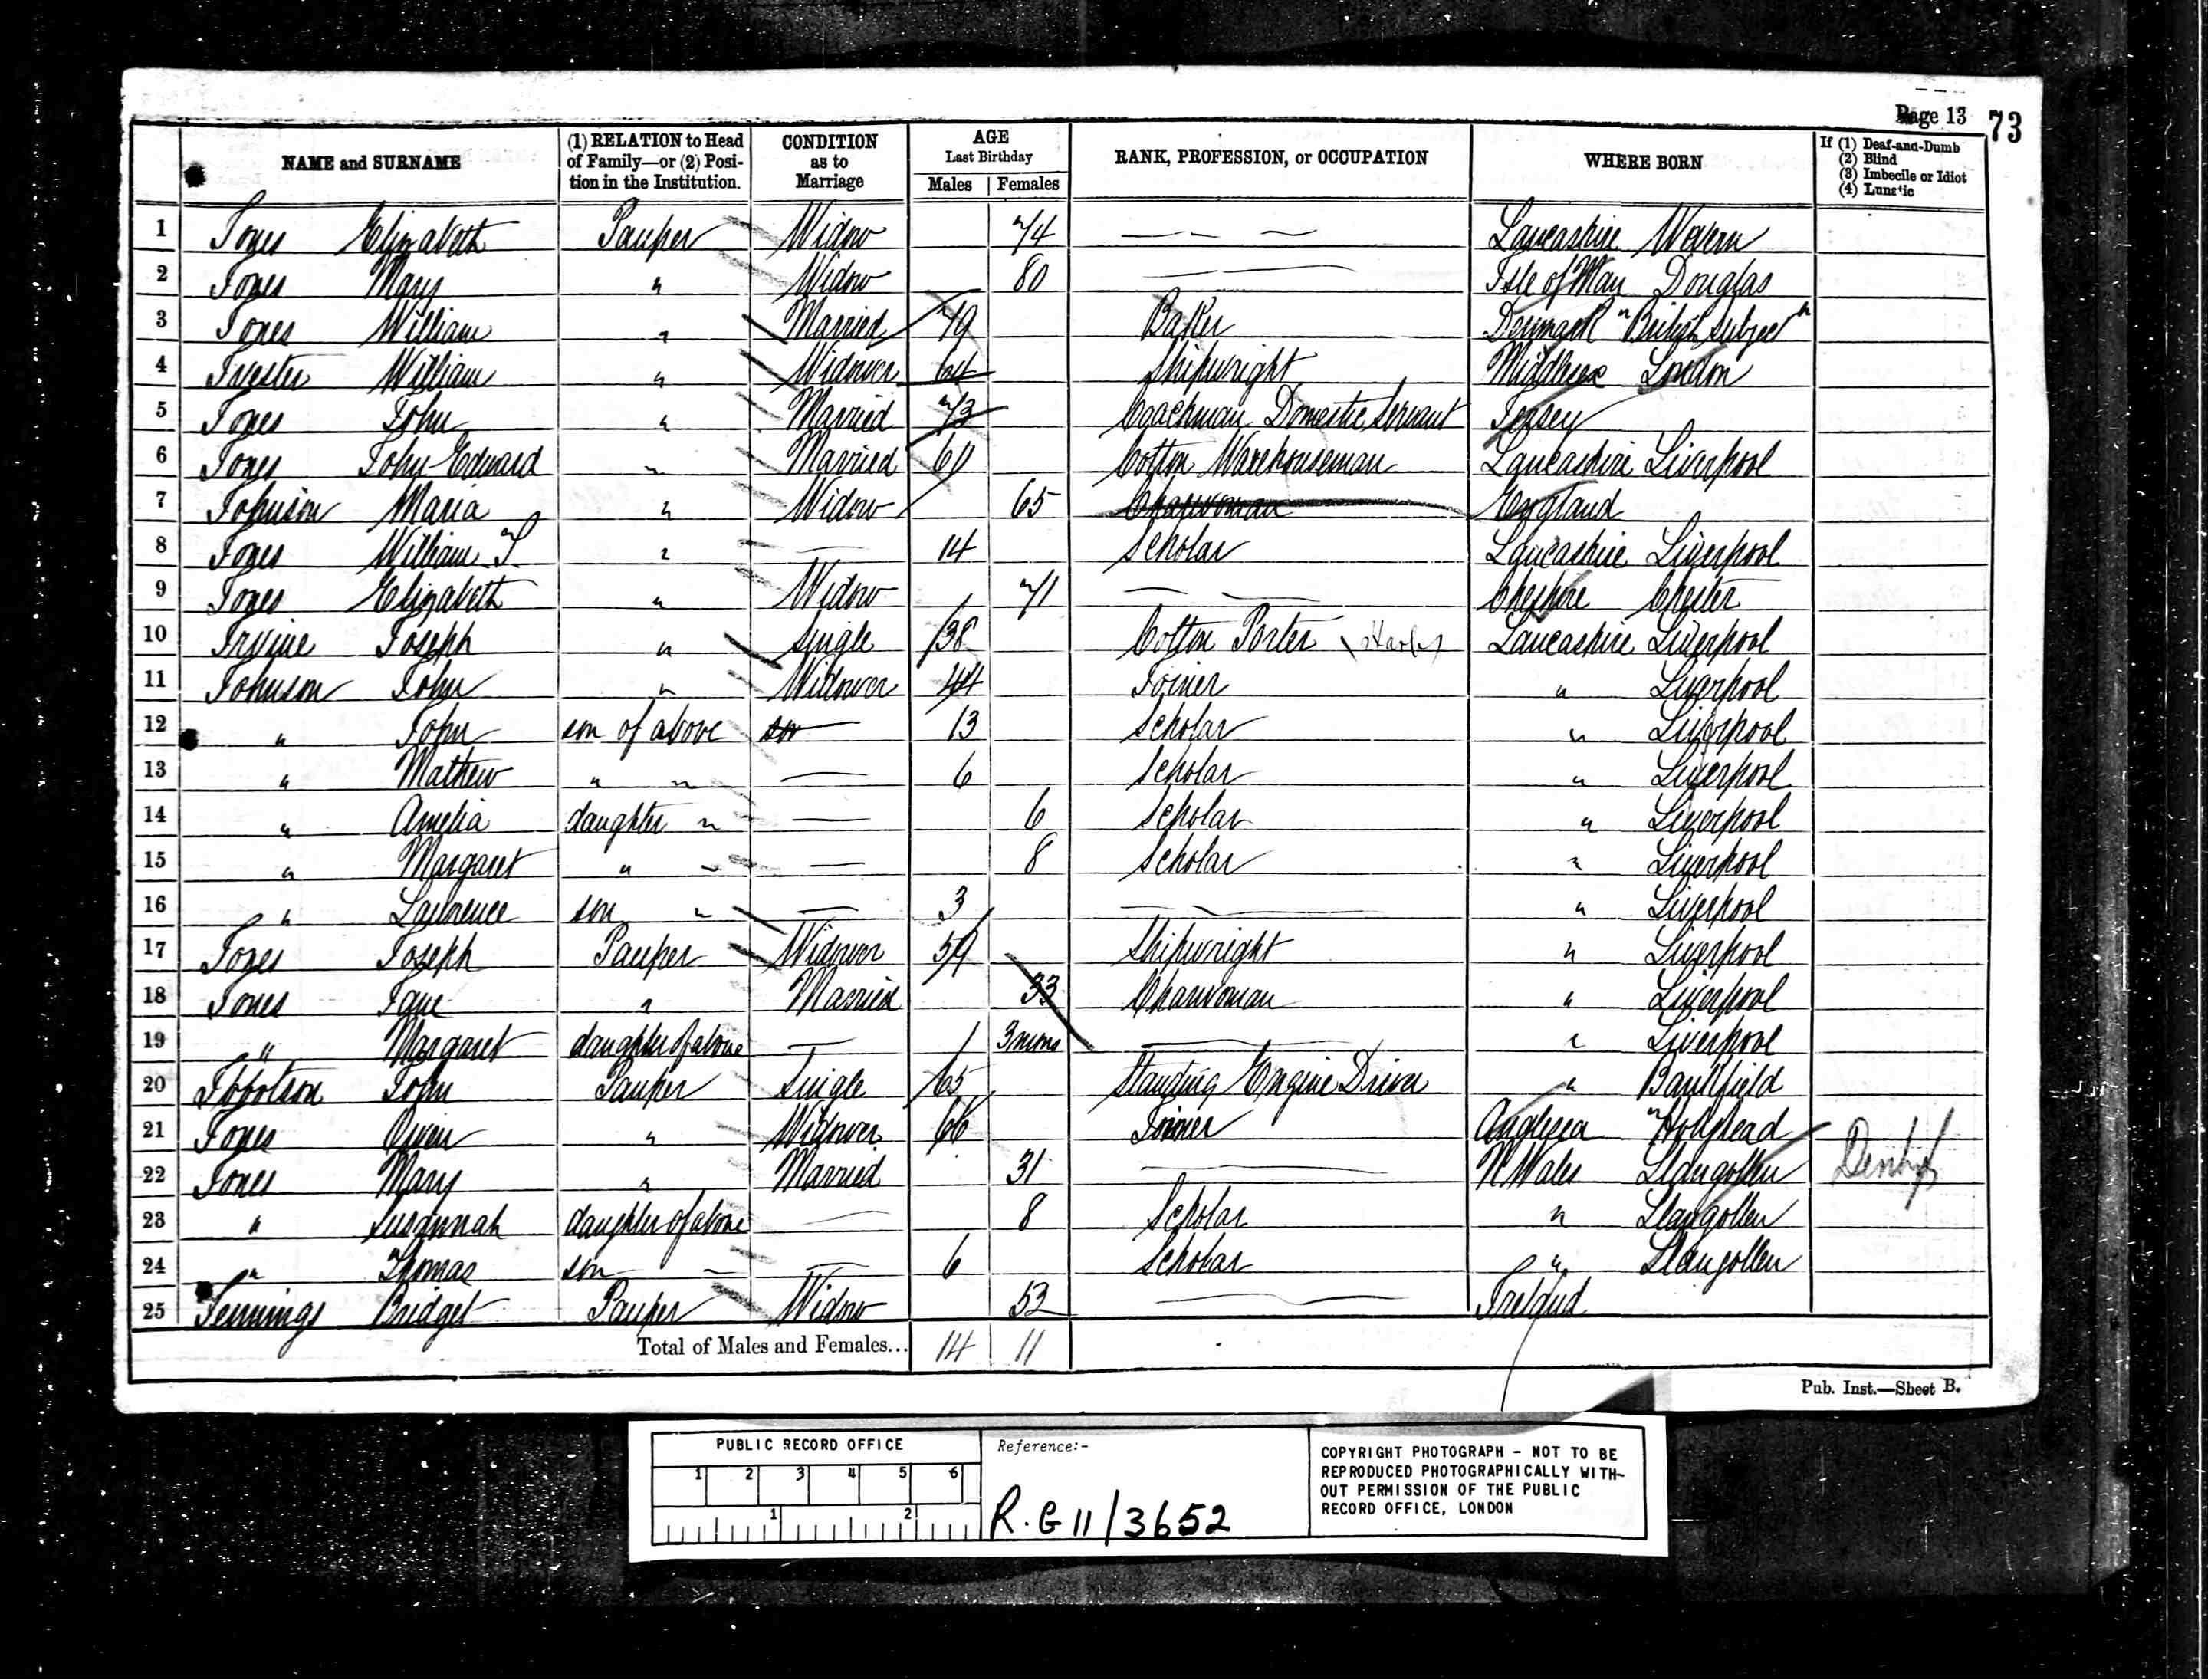 Page 13 73
NAME and SURNAME (1) RELATION to Head of Family—or (2) Position in the Institution. CONDITION as to Marriage AGE Last Birthday Males Females RANK, PROFESSION, or OCCUPATION WHERE BORN If (1) Deaf-and-Dumb (2) Blind (3) Imbecile or Idiot (4) Lunatic
1 Jones Elizabeth Pauper Widow 74 — — — Lancashire
2 Jones Mary " Widow 80 — — Isle of Man Douglas
3 Jones William " Married 79 Baker Denmark "British Subject"
4 William " Widower 64 Shipwright Middlesex London
5 Jones John " Married 73 Coachman Domestic Servant Jersey
6 Jones John Edward " Married 61 Cotton Warehouseman Lancashire Liverpool
7 Johnson Maria " Widow 65 Charwoman England
8 Jones William T. " — 14 Scholar Lancashire Liverpool
9 Jones Elizabeth " Widow 71 — — Cheshire Chester
10 Irvine Joseph " Single 38 Cotton Porter Lancashire Liverpool
11 Johnson John " Widower 44 Joiner " Liverpool
12 " John son of above son 13 Scholar " Liverpool
13 " Mathew " " — 6 Scholar " Liverpool
14 " Amelia daughter " — 6 Scholar " Liverpool
15 " Margaret " " — 8 Scholar " Liverpool
16 " Lawrence son " — 3 — — " Liverpool
17 Jones Joseph Pauper Widower 59 Shipwright " Liverpool
18 Jones Jane " Married 33 Charwoman " Liverpool
19 " Margaret daughter of above — 3 mons — " Liverpool
20 Ibbotson John Pauper Single 65 Standing Engine Driver "
21 Jones Owen " Widower 66 Joiner Anglesea Holyhead
22 Jones Mary " Married 31 — N Wales Llangollen Denbigh
23 " Susannah daughter of above — 8 Scholar " Llangollen
24 " Thomas son — — 6 Scholar " Llangollen
25 Jennings Bridget Pauper Widow 52 — Ireland
Total of Males and Females... 14 11
Pub. Inst.—Sheet B.
PUBLIC RECORD OFFICE
1 2 3 4 5 6
1 2
Reference:-
R.G 11/3652
COPYRIGHT PHOTOGRAPH - NOT TO BE
REPRODUCED PHOTOGRAPHICALLY WITH-
OUT PERMISSION OF THE PUBLIC
RECORD OFFICE, LONDON